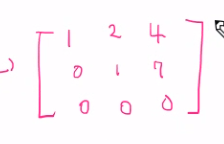 1 2 4
0 1 7
0 0 0